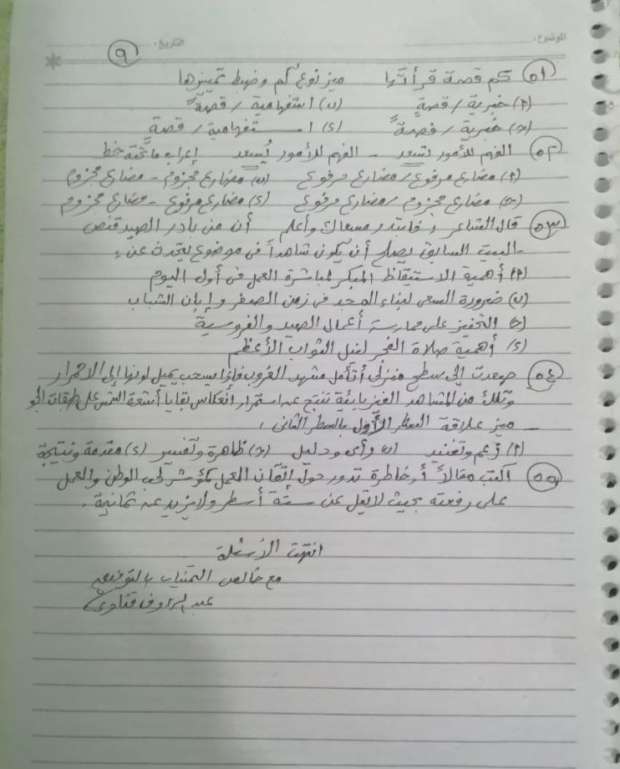 الموضوع: التاريخ:
٩
٥١ كم قصة قرأتها ميز نوع كم وضبط تمييزها
(أ) خبرية / قصةٍ (ب) استفهامية / قصةً
(ج) خبرية / قصةً (د) استفهامية / قصةٍ
٥٢ الفهم للأمور تسعد - الفهم للأمور يُسعد إعراب ما تحته خط
(أ) مضارع مرفوع / مضارع مرفوع (ب) مضارع مجزوم - مضارع مجزوم
(ج) مضارع مجزوم / مضارع مرفوع (د) مضارع مرفوع - مضارع مجزوم
٥٣ قال الشاعر : فابتدر مسعاك واعلم أن من بادر الصيد قنص
- البيت السابق يصلح أن يكون شاهداً في موضوع يتحدث عن :
(أ) أهمية الاستيقاظ المبكر لمباشرة العمل في أول اليوم
(ب) ضرورة السعي لبناء المجد في زمن الصغر وإبان الشباب
(ج) التحفيز على ممارسة أعمال الصيد والفروسية
(د) أهمية صلاة الفجر لنيل الثواب الأعظم
٥٤ صعدت إلى سطح منزلي أتأمل مشهد الغروب فإذا بسحب يميل لونها إلى الاحمرار
وتلك من المشاهد الفيزيائية تنتج عن استمرار انعكاس بقايا أشعة الشمس على طبقات الجو
- ميز علاقة السطر الأول بالسطر الثاني :
(أ) زعم وتفنيد (ب) رأي ودليل (ج) ظاهرة وتفسير (د) مقدمة ونتيجة
٥٥ اكتب مقالاً أو خاطرة تدور حول إتقان العمل كمؤشر لحب الوطن والعمل
على رفعته بحيث لا يقل عن ستة أسطر ولا يزيد عن ثمانية .
انتهت الأسئلة
مع خالص التمنيات بالتوفيق
عبد الرؤوف قناوي